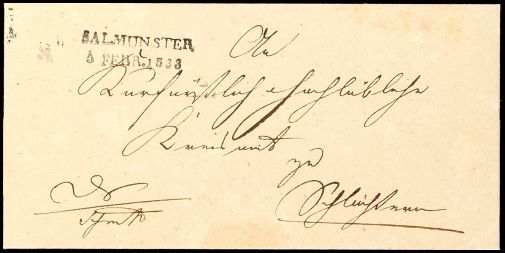 SALMÜNSTER
5 FEBR. 1833
An
Kurfürstlich Hochlöbliche
Kreisamt
zu
Schlüchtern